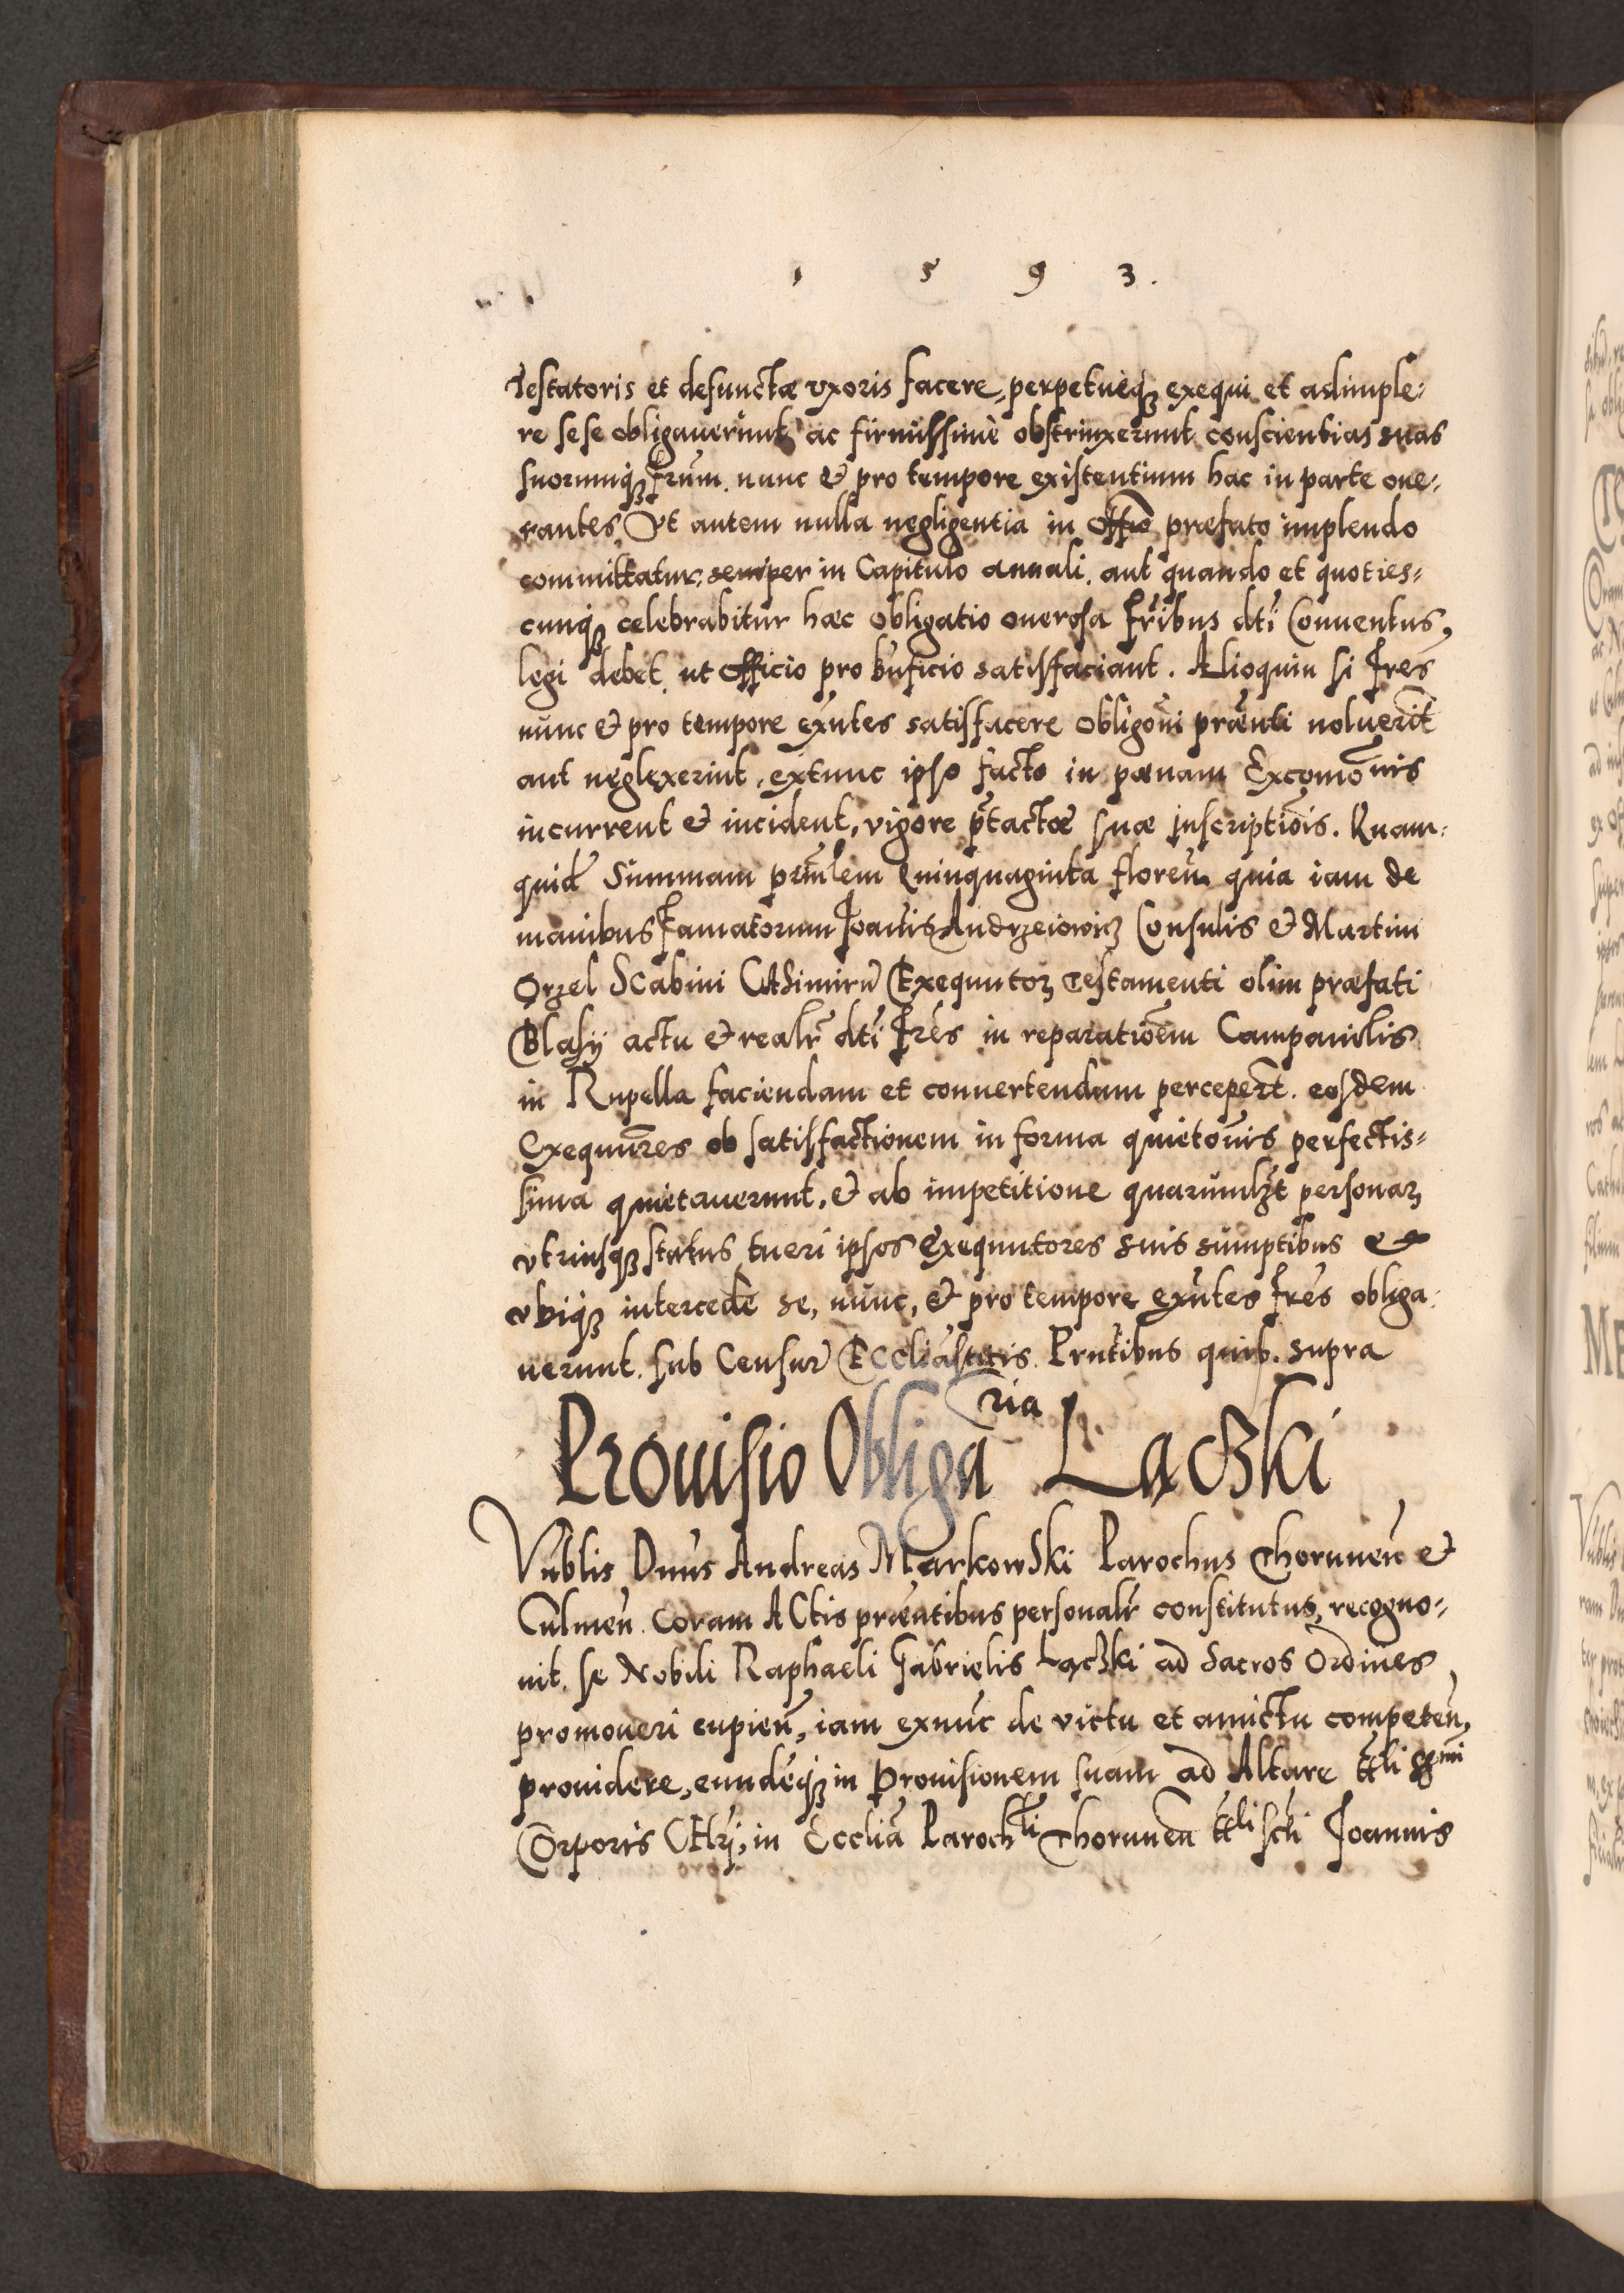 1 5 9 3.
Testatoris et defunctæ vxoris facere, perpetueq3 exequi et adimple-
re sese obligauerunt ac firmissime obstrinxerunt conscientias suas
suorumq3 frum̃ nunc & pro tempore existentium hac in parte one-
rantes. Vt autem nulla negligentia in offiõ præfato implendo
committatur, semper in Capitulo annali, aut quando et quoties-
cunq3 celebrabitur hæc obligatio onerosa fr̃ibus dti Conuentus,
legi debet, ut officio pro bnficio satisfaciant. Alioquin si fres
nunc & pro tempore exñtes satisfacere obligõni præñti noluerĩt
aut neglexerint, extunc ipso facto in pœnam Excomõnis
incurrent & incident, vigore p̃tactæ suæ inscriptiõis. Quam-
quid̃ Summam prñlem Quinquaginta floreñ quia iam de
manibus Famatorum Joañis Andrzeiowicz Consulis & Martini
Orzel Scabini Casimirieñ Exequutor3 Testamenti olim præfati
Blasij actu & realr̃ dti Fres in reparatiõem Campanilis
in Rupella faciendam et conuertendam perceper̃t. eosdem
Exequut̃res ob satisfactionem in forma quietõnis perfectis-
sima quietauerunt, & ab impetitione quarumlz̃t personar3
vtriusq3 status tueri ipsos exequutores suis sumptibus &
vbiq3 intercede se, nunc, & pro tempore exñtes fres obliga-
uerunt. sub Censur̃ Ecclĩasticis. Prñtibus quib. supra
Prouisio Obligaria Łączki
Vñblis Dnus Andreas Markowski Parochus Thorunen̄ &
Culmeñ. Coram Actis præñtibus personalr̃ constitutus, recogno-
uit. se Nobili Raphaeli Gabrielis Łączki ad Sacros Ordines
promoueri cupieñ, iam exnunc de victu et amictu competeñ,
prouidere, eundeq3 in Prouisionem suam ad Altare ttli Ssmi
Corporis Chri, in Ecclia Parochli Thoruneñ ttli scti Joannis